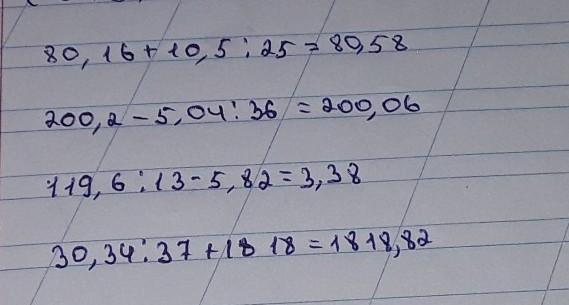 80,16+10,5:25=80,58
200,2-5,04:36=200,06
119,6:13-5,82=3,38
30,34:37+1818=1818,82